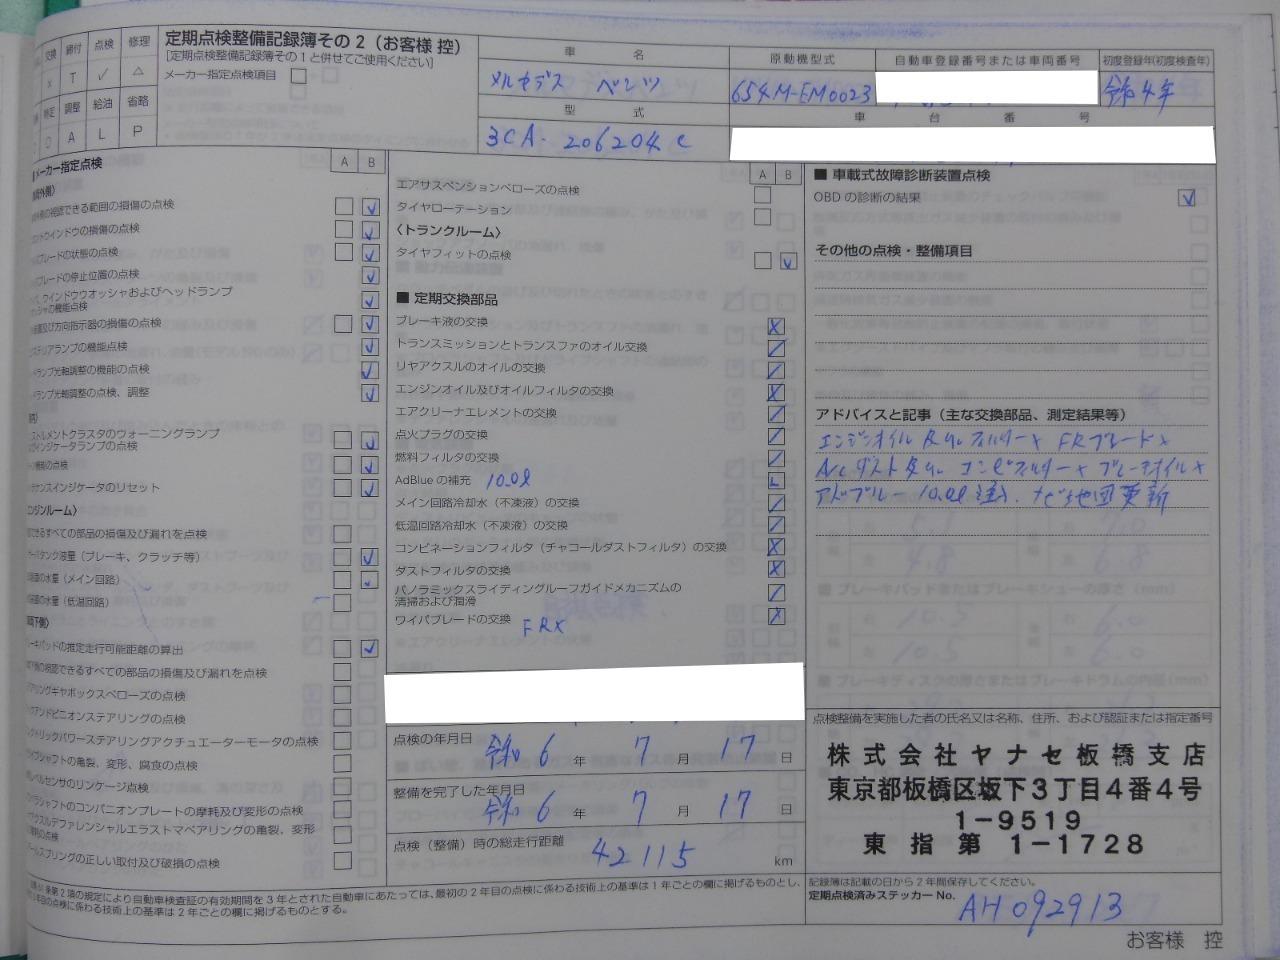 交換 締付 点検 修理
× T ✓ △
特定 調整 給油 省略
○ A L P
定期点検整備記録簿その2（お客様 控）
[定期点検整備記録簿その1と併せてご使用ください]
メーカー指定点検項目
車 名
メルセデス ベンツ
原動機型式
654M-EM0023
自動車登録番号または車両番号
初度登録年(初度検査年)
令和4年
型 式
3CA-206204C
車 台 番 号
メーカー指定点検
A B
視認できる範囲の損傷の点検
ウインドウの損傷の点検
ブレードの状態の点検
ブレードの停止位置の点検
ウインドウウオッシャおよびヘッドランプ
の機能点検
及び方向指示器の損傷の点検
リアランプの機能点検
ランプ光軸調整の機能の点検
ランプ光軸調整の点検、調整
ストルメントクラスタのウォーニングランプ
インジケータランプの点検
機能の点検
テナンスインジケータのリセット
エンジンルーム〉
すべての部品の損傷及び漏れを点検
タンク液量（ブレーキ、クラッチ等）
水量（メイン回路）
水量（低温回路）
下側）
ーキパッドの推定走行可能距離の算出
視認できるすべての部品の損傷及び漏れを点検
アリングギヤボックスベローズの点検
クアンドピニオンステアリングの点検
クトリックパワーステアリングアクチュエーターモータの点検
シャフトの亀裂、変形、腐食の点検
レベルセンサのリンケージ点検
シャフトのコンパニオンプレートの摩耗及び変形の点検
アクスルデファレンシャルエラストマベアリングの亀裂、変形
の点検
ールスプリングの正しい取付及び破損の点検
A B
エアサスペンションベローズの点検
タイヤローテーション
〈トランクルーム〉
タイヤフィットの点検
■ 定期交換部品
ブレーキ液の交換
トランスミッションとトランスファのオイル交換
リヤアクスルのオイルの交換
エンジンオイル及びオイルフィルタの交換
エアクリーナエレメントの交換
点火プラグの交換
燃料フィルタの交換
AdBlueの補充 10.0ℓ
メイン回路冷却水（不凍液）の交換
低温回路冷却水（不凍液）の交換
コンビネーションフィルタ（チャコールダストフィルタ）の交換
ダストフィルタの交換
パノラミックスライディングルーフガイドメカニズムの
清掃および潤滑
ワイパブレードの交換 FRX
点検の年月日
令和 6 年 7 月 17 日
整備を完了した年月日
令和 6 年 7 月 17 日
点検（整備）時の総走行距離
42115 km
■ 車載式故障診断装置点検
OBDの診断の結果
その他の点検・整備項目
アドバイスと記事（主な交換部品、測定結果等）
エンジンオイル 及 フィルター× FRブレード×
A/Cダスト及 コンビフィルター× ブレーキオイル×
アドブルー 10.0ℓ 注入. ナビ地図更新
点検整備を実施した者の氏名又は名称、住所、および認証または指定番号
株式会社ヤナセ板橋支店
東京都板橋区坂下3丁目4番4号
1-9519
東指第 1-1728
記録簿は記載の日から2年間保存してください。
定期点検済みステッカーNo.
AH092913
条第2項の規定により自動車検査証の有効期間を3年とされた自動車にあたっては、最初の2年目の点検に係わる技術上の基準は1年ごとの欄に掲げるものとし、
年目の点検に係わる技術上の基準は2年ごとの欄に掲げるものとする。
お客様 控